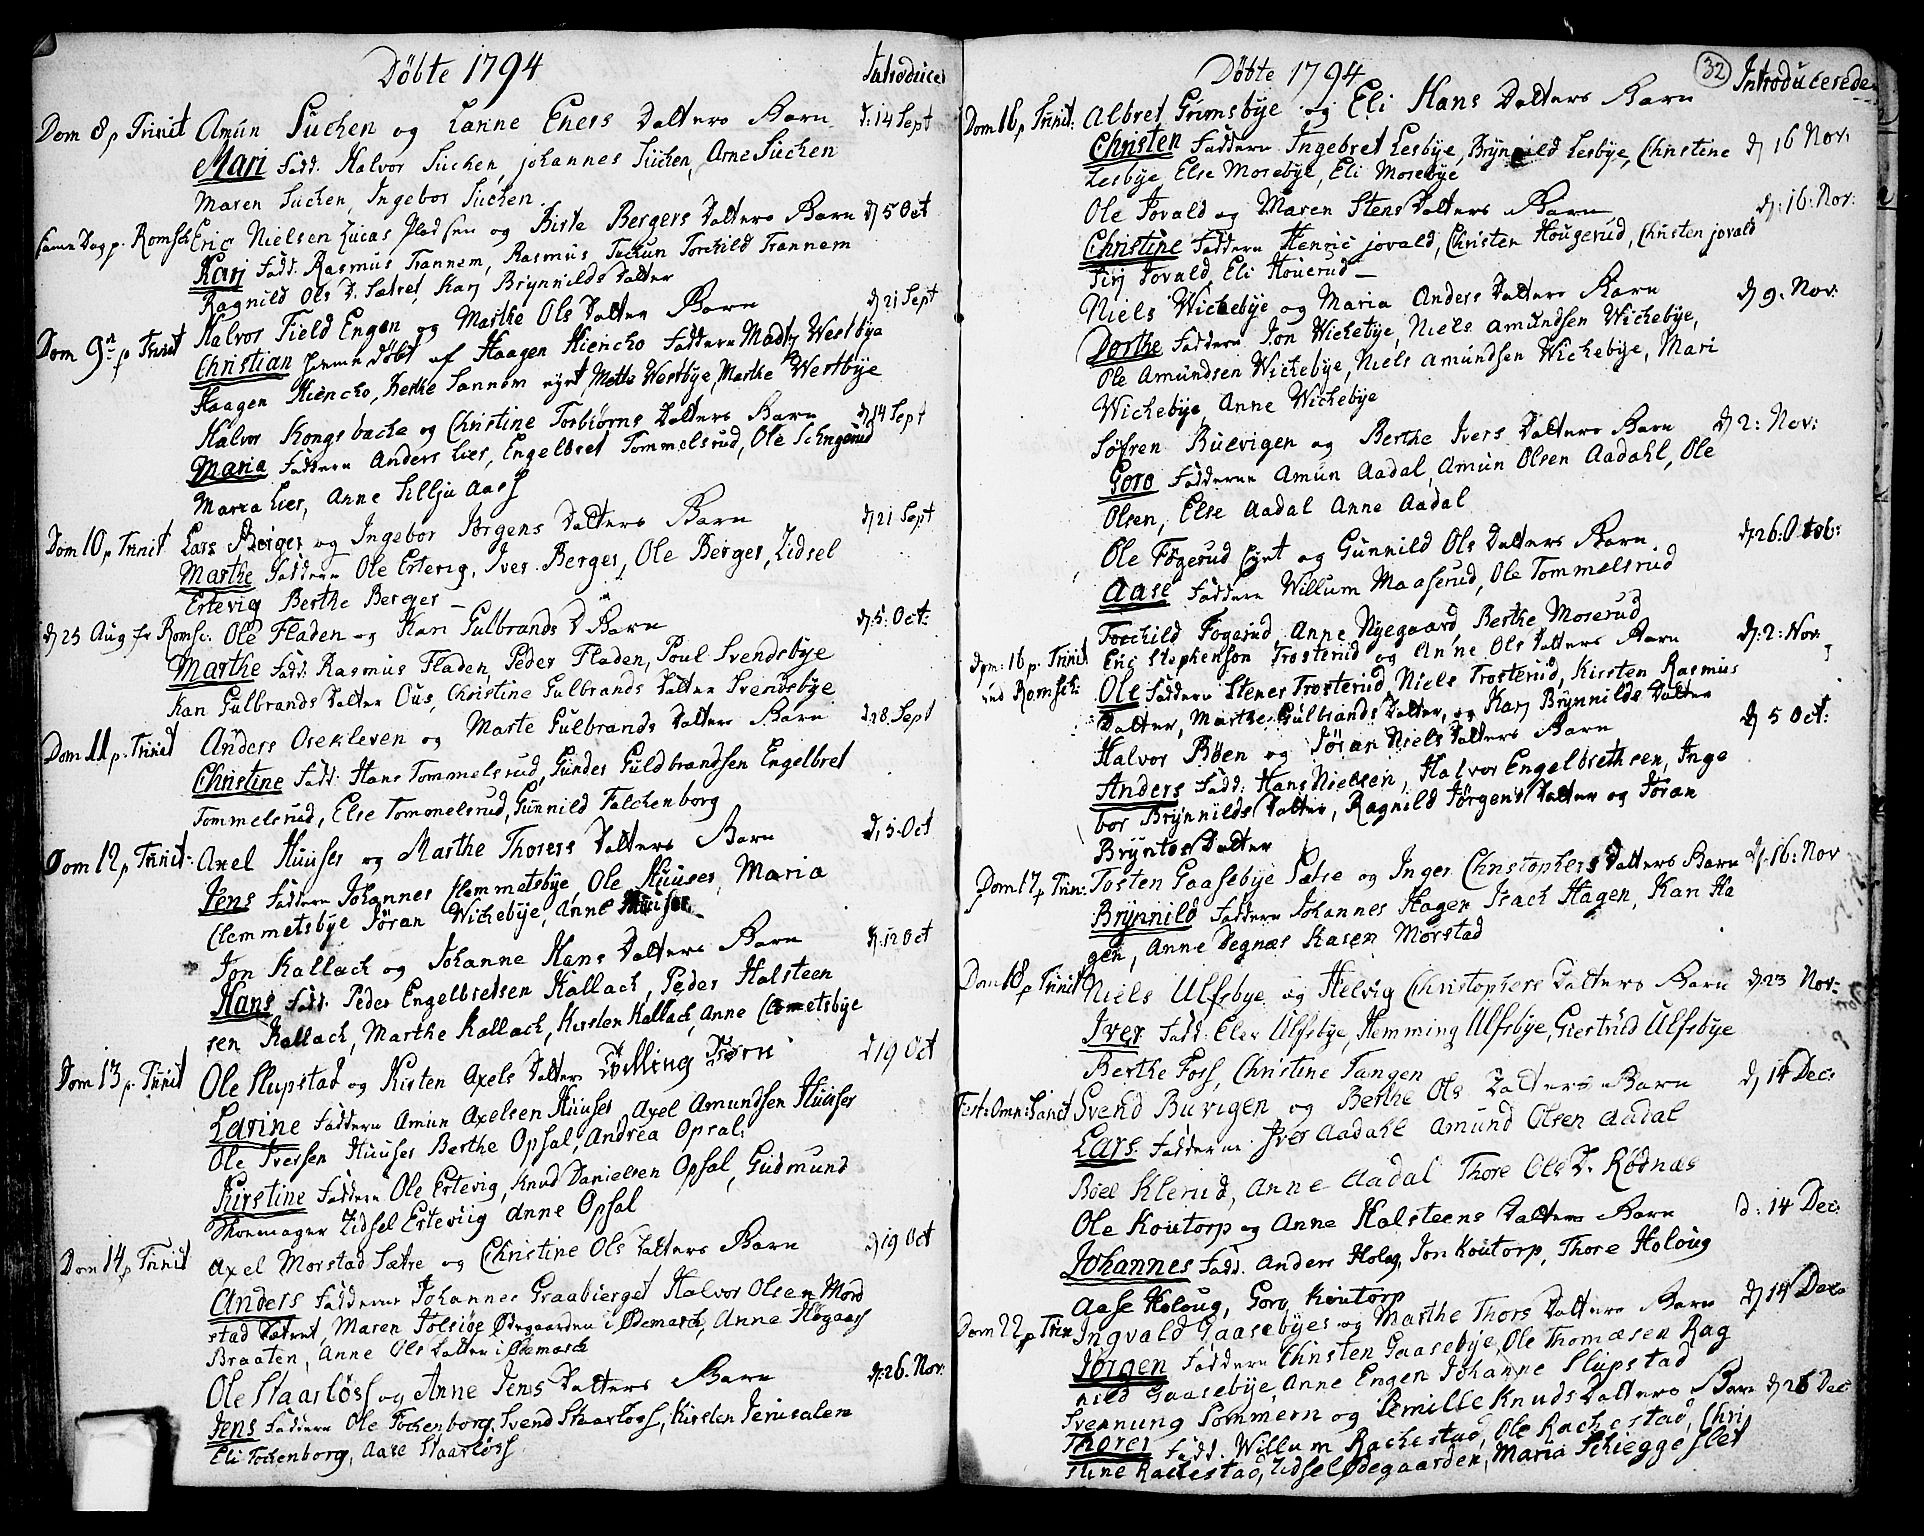 Døbte 1794 Introduce
Dom 8 p Trinit Amün Suchen og Larine Eners Datters Barn d: 14 Sept
Mari Fadd. Halvor Suchen, johannes Süchen, Arne Süchen
Maren Süchen, Ingebor Suchen
samme Dag p. Romsch Eric Nielsen Lucas Pladsen og Birte Bergers Datters Barn dj 5 Oct
Karj Fadd. Rasmus Trannem, Rasmus Tuckun Torchild Trannem
Ragnild Ols D. Sætret, Karj Brynnilds Datter
Halvor Field Engen og Marthe Ols Datters Barn dj 21 Sept
Dom 9 p Trinit Christian hjemme døbt af Haagen Kiencho Faddern Madtz Westbye
Haagen Kiencho, Sannem, Mette Westbye, Marthe Westbye
Halvor Kongsbache og Christine Torbiørns Datters Barn dj 14 Sept
Maria Faddern Anders Lier, Engelbret Tommelsrud, Ole
Maria Lier, Anne Sillju Aass
Dom 10 p Trinit Lars Berger og Ingebor Jørgens Datters Barn dj 21 Sept
Marthe Faddern Ole Ertevig, Iver Berger, Ole Berger, Zidsel
Ertevig Berthe Berger
dj 25 Aug fr Romsc: Ole Fladen og Kari Gulbrands D Barn dj: 5: Oct:
Marthe Fadd: Rasmus Fladen, Peder Fladen, Poul Svendsbye
Kari Gulbrands Datter Ous, Christine Gulbrands Datter Svendsbye
Dom 11 p. Trinit Anders Osekleven og Marte Gulbrands Datters Barn d: 28 Sept
Christine Fadd: Hans Tommelsrud, Gunder Guldbrandsen Engelbret
Tommelsrud, Else Tommelsrud, Gunnild Falchenborg
Dom 12 p Trinit: Axel Huuser og Marthe Thorers Datters Barn d, 5. Oct
Jens Faddern Johannes Clemmetsbye, Ole Huuser, Maria
Clemmetsbye Jöran Wichebye, Anne Huuser
Jon Kallach og Johanne Hans Datters Barn d: 12 Oct
Hans Fadd: Peder Engelbretsen Kallach, Peder Halsteen
sen Kallach, Marthe Kallach, Kirsten Kallach, Anne Clemetsbye
Dom 13 p. Trinit Ole Slupstad og Kirsten Axels Datter Tvilling Børn d 19 Oct
Larine Faddern Amün Axelsen Huuser Axel Amundsen Huuser
Ole Iversen Huuser Berthe Opsal, Andrea Opsal.
Kirstine Faddern Ole Ertevig, Knud Danielsen Opsal, Gudmund
Skoemager Zidsel Erteviig Anne Opsal
Dom 14 p Trinit Axel Morstad Sætre og Christine Ols Datters Barn dj 19 Oct
Anders Fadderne Johannes Graabierget Halvor Olsen Mord
stad Sætret, Maren Jolsiøe Ødegaarden i Ødemarck, Anne Høgaas
Braaten, Anne Ols Datter i Ødemarck
Ole Skaarløss og Anne Jens Datters Barn dj: 26. Nov
Jens Faddern Ole Fochenborg, Svend Skaarloss, Kirsten Jerusalem
Eli Fochenborg, Aase Skaarløss
Døbte 1794 32 Introducerede
Dom 16 p Trinit: Albret Grimsbye og Eli Hans Datters Barn
Christen Faddern Ingebret Lesbye, Brynnild Lesbye, Christine dj 16 Nov:
Lesbye Else Morebye, Eli Morebye
Ole Jovald og Maren Stens Datters Barn dj: 16: Nov:
Christine Faddern Henric jovald, Christen Hougerud, Christen jovald
Sirj Jovald, Eli Houerud
Niels Wichebye og Maria Anders Datters Barn dj 9. Nov:
Dorthe Faddern Jon Wichebye, Niels Amundsen Wichebye,
Ole Amundsen Wichebye, Niels Amundsen Wichebye, Mari
Wichebye Anne Wichebye
Söfren Buevigen og Berthe Ivers Datters Barn dj 2: Nov:
Goro Fadderne Amün Aadal, Amün Olsen Aadahl, Ole
Olsen, Else Aadal Anne Aadal
Ole Fögerud Eyet og Gunnild Ols Datters Barn dj 26: Octob:
Aase Faddern Willum Maaserud, Ole Tommelsrud
Torchild Fogerud, Anne Nyegaard, Berthe Moserud
Dom: 16 p. Trinit Eric Stephenson Trosterud og Anne Ols Datters Barn dj: 2: Nov:
ved Romsch: Ole Faddern Stener Trosterud Niels Trosterud, Kirsten Rasmus
Datter, Marthe Gulbrands Datter, og Karj Brynnilds Datter
Halvor Böen og Jöran Niels Datters Barn dj 5 Oct:
Anders Fadd: Hans Nielsen, Halvor Engelbrethsen, Inge
bor Brynnilds Datter, Ragnild Jörgens Datter og Jöran
Bryntes Datter
Dom 17 p Trin: Tosten Gaasebye Sætre og Inger Christophers Datters Barn dj. 16: Nov
Brynnild Faddern Johannes Hagen Isach Hagen, Kari Ha
gen, Anne Degnæs Karen Morstad
Dom 18 p Trinit Niels Ulfsbye og Helvig Christophers Datters Barn dj 23 Nov:
Iver Fadd: Elev Ulfsbye, Hemming Ulfsbye, Giertrud Ulfsbye
Berthe Foss, Christine Tangen
Fest: Omn: Sanct Svend Buvigen og Berthe Ols Datters Barn dj 14 Dec:
Lars Fadderne Iver Aadahl Amund Olsen Aadal
Böel Klerud, Anne Aadal Thore Ols D. Rødnæs
Ole Koutorp og Anne Halsteens Datters Barn d: 14 Dec:
Johannes Fadd. Anders Holog, Jon Koutorp, Thore Holoug
Aase Holoug, Goro Koutorp
Dom 22 p Trin Ingvald Gaasebyes og Marthe Thors Datters Barn dj 14 Dec
Jørgen Faddern Christen Gaasebye, Ole Thomæsen Rag
nild Gaasebye, Anne Engen Johanne Slupstad
Svennung Sommern og Pernille Knuds Datters Barn dj 26 Dec
Thorer Fadd. Willum Rackestad, Ole Rackestad, Chri
stine Rackestad, Zidsel Ødegaarden, Maria Schieggerslet